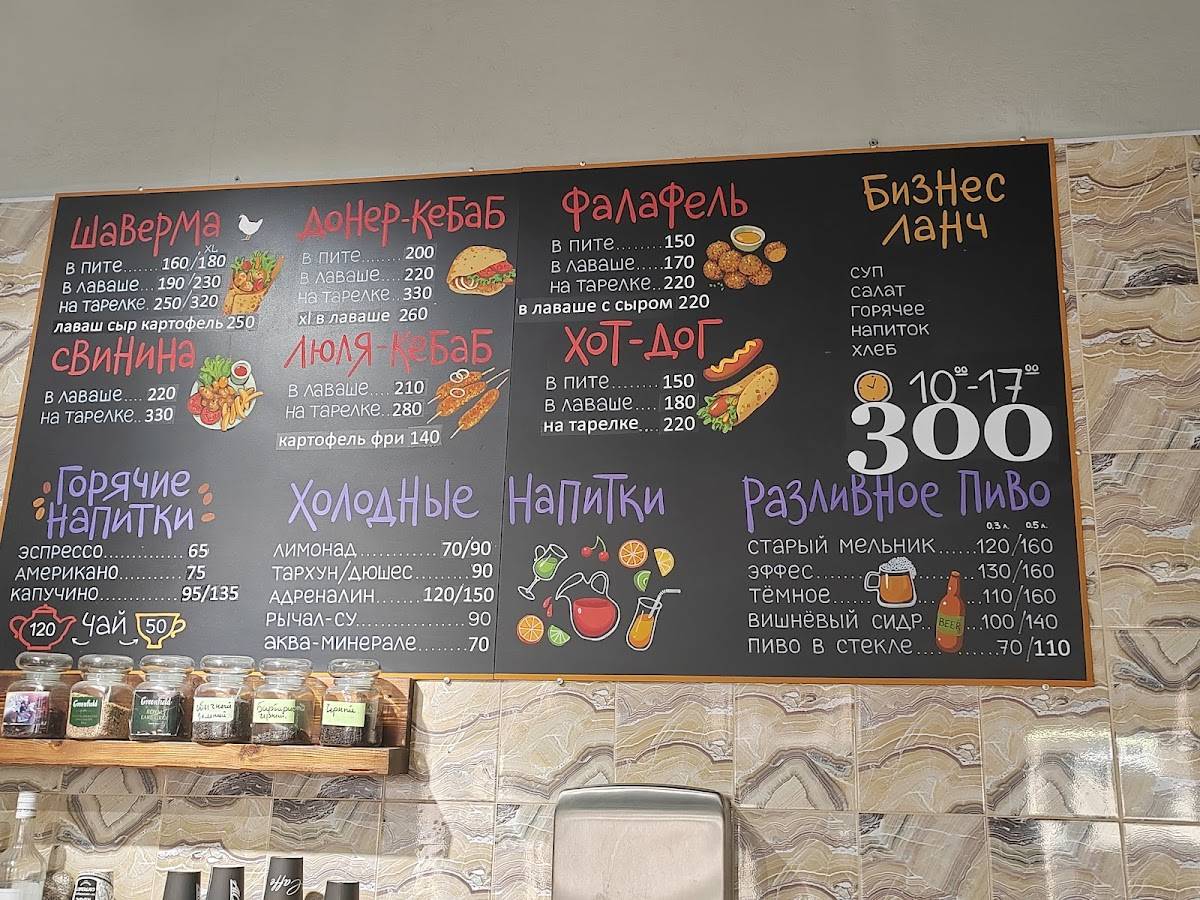 Шаверма
XL
в пите.......160/180
в лаваше... 190/230
на тарелке. 250/320
лаваш сыр картофель 250
Свинина
в лаваше... 220
на тарелке.. 330
Донер-кебаб
в пите........ 200
в лаваше..... 220
на тарелке.. 330
xl в лаваше 260
Люля-кебаб
в лаваше.... 210
на тарелке.. 280
картофель фри 140
Фалафель
в пите........150
в лаваше.....170
на тарелке... 220
в лаваше с сыром 220
Хот-дог
в пите....... 150
в лаваше.... 180
на тарелке.... 220
Бизнес
ланч
суп
салат
горячее
напиток
хлеб
10⁰⁰-17⁰⁰
300
Горячие
напитки
эспрессо............ 65
американо.......... 75
капучино.......... 95/135
120 чай 50
Холодные напитки
лимонад ........... 70/90
тархун/дюшес........ 90
адреналин....... 120/150
рычал-су.............. 90
аква-минерале....... 70
Разливное пиво
0.3 л. 0.5 л.
старый мельник.....120/160
эффес..................130/160
тёмное.................110/160
вишнёвый сидр.... 100/140
пиво в стекле...........70/110
BEER
Greenfield
Greenfield
Caffe